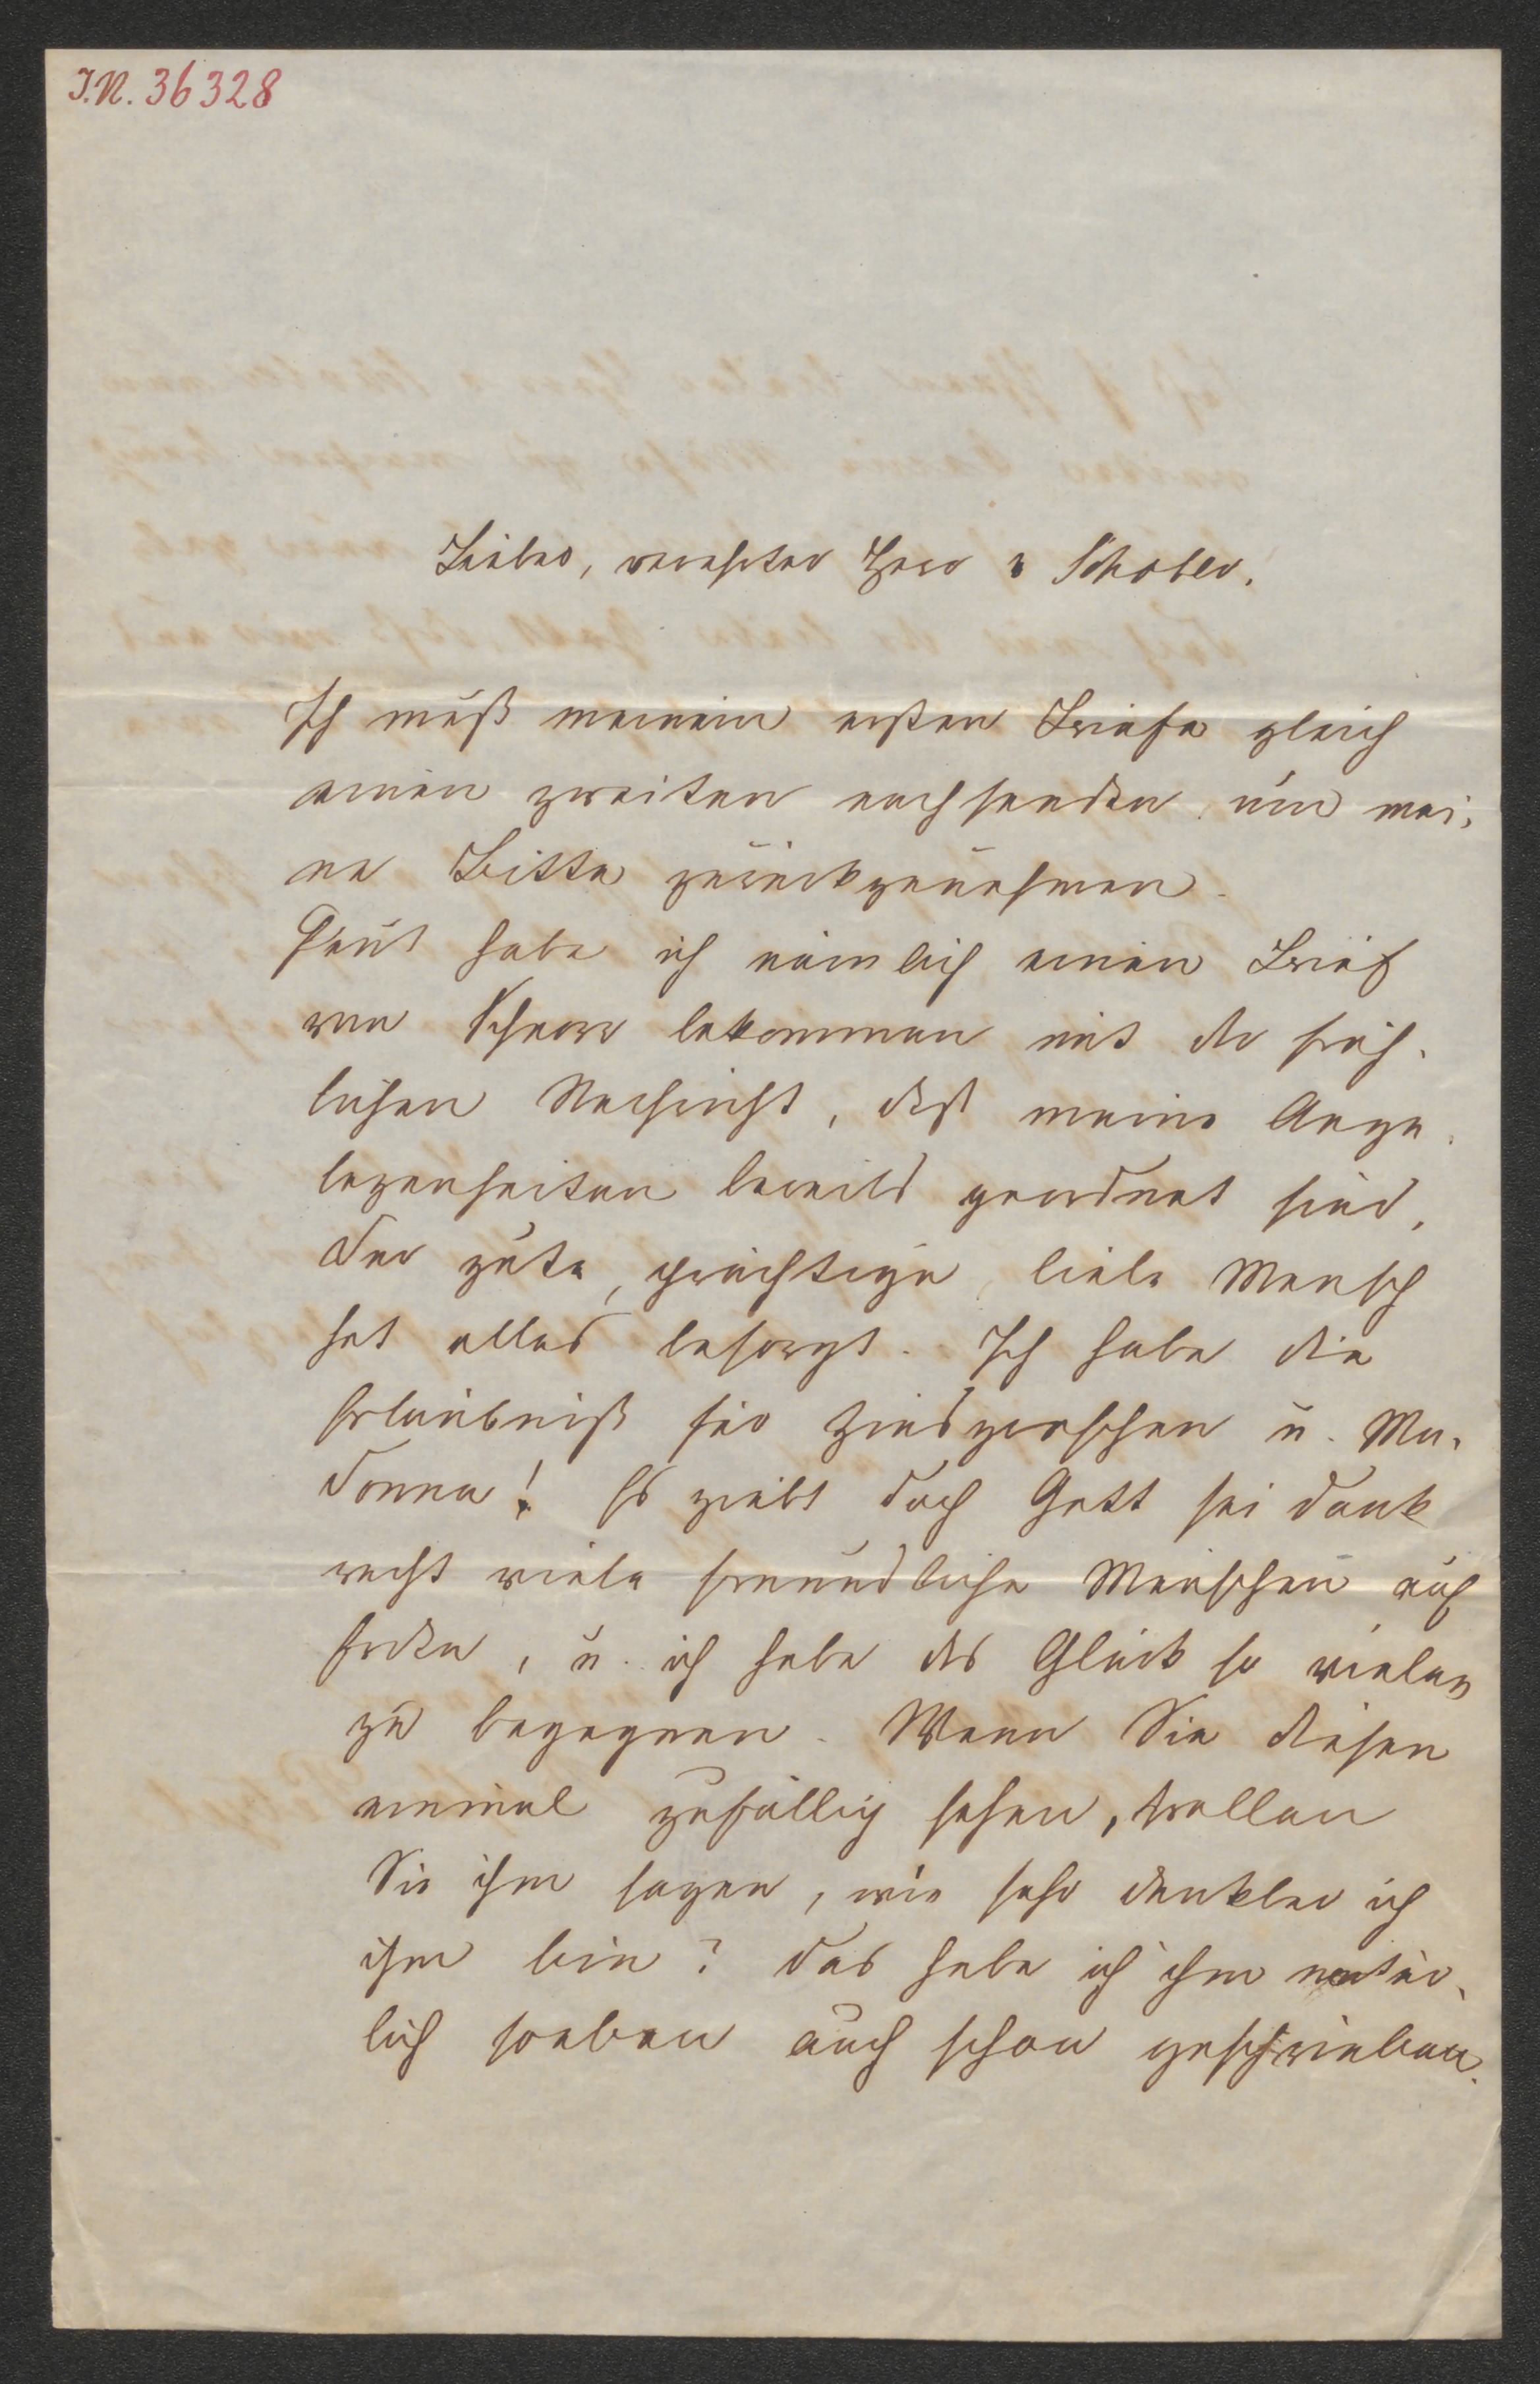 I.N. 36328
Lieber, verehrter Herr v Schober.
Ich muß meinem ersten Briefe gleich
einen zweiten nachsenden um mei-
ne Bitte zurückzunehmen.
Heut habe ich nämlich einen Brief
von Schnorr bekommen mit der fröh-
lichen Nachricht, daß meine Ange-
legenheiten bereits geordnet sind,
der gute, prächtige, liebe Mensch
hat alles besorgt. Ich habe die
Erlaubniß für Zinsgroschen u. Ma-
donna! Es giebt doch Gott sei dank
recht viele freundliche Menschen auf
Erden, u. ich habe das Glück so vielen
zu begegnen. Wenn Sie diesen
einmal zufällig sehen, wollen
Sie ihm sagen, wie sehr dankbar ich
ihm bin? das habe ich ihm natür-
lich soeben auch schon geschrieben.